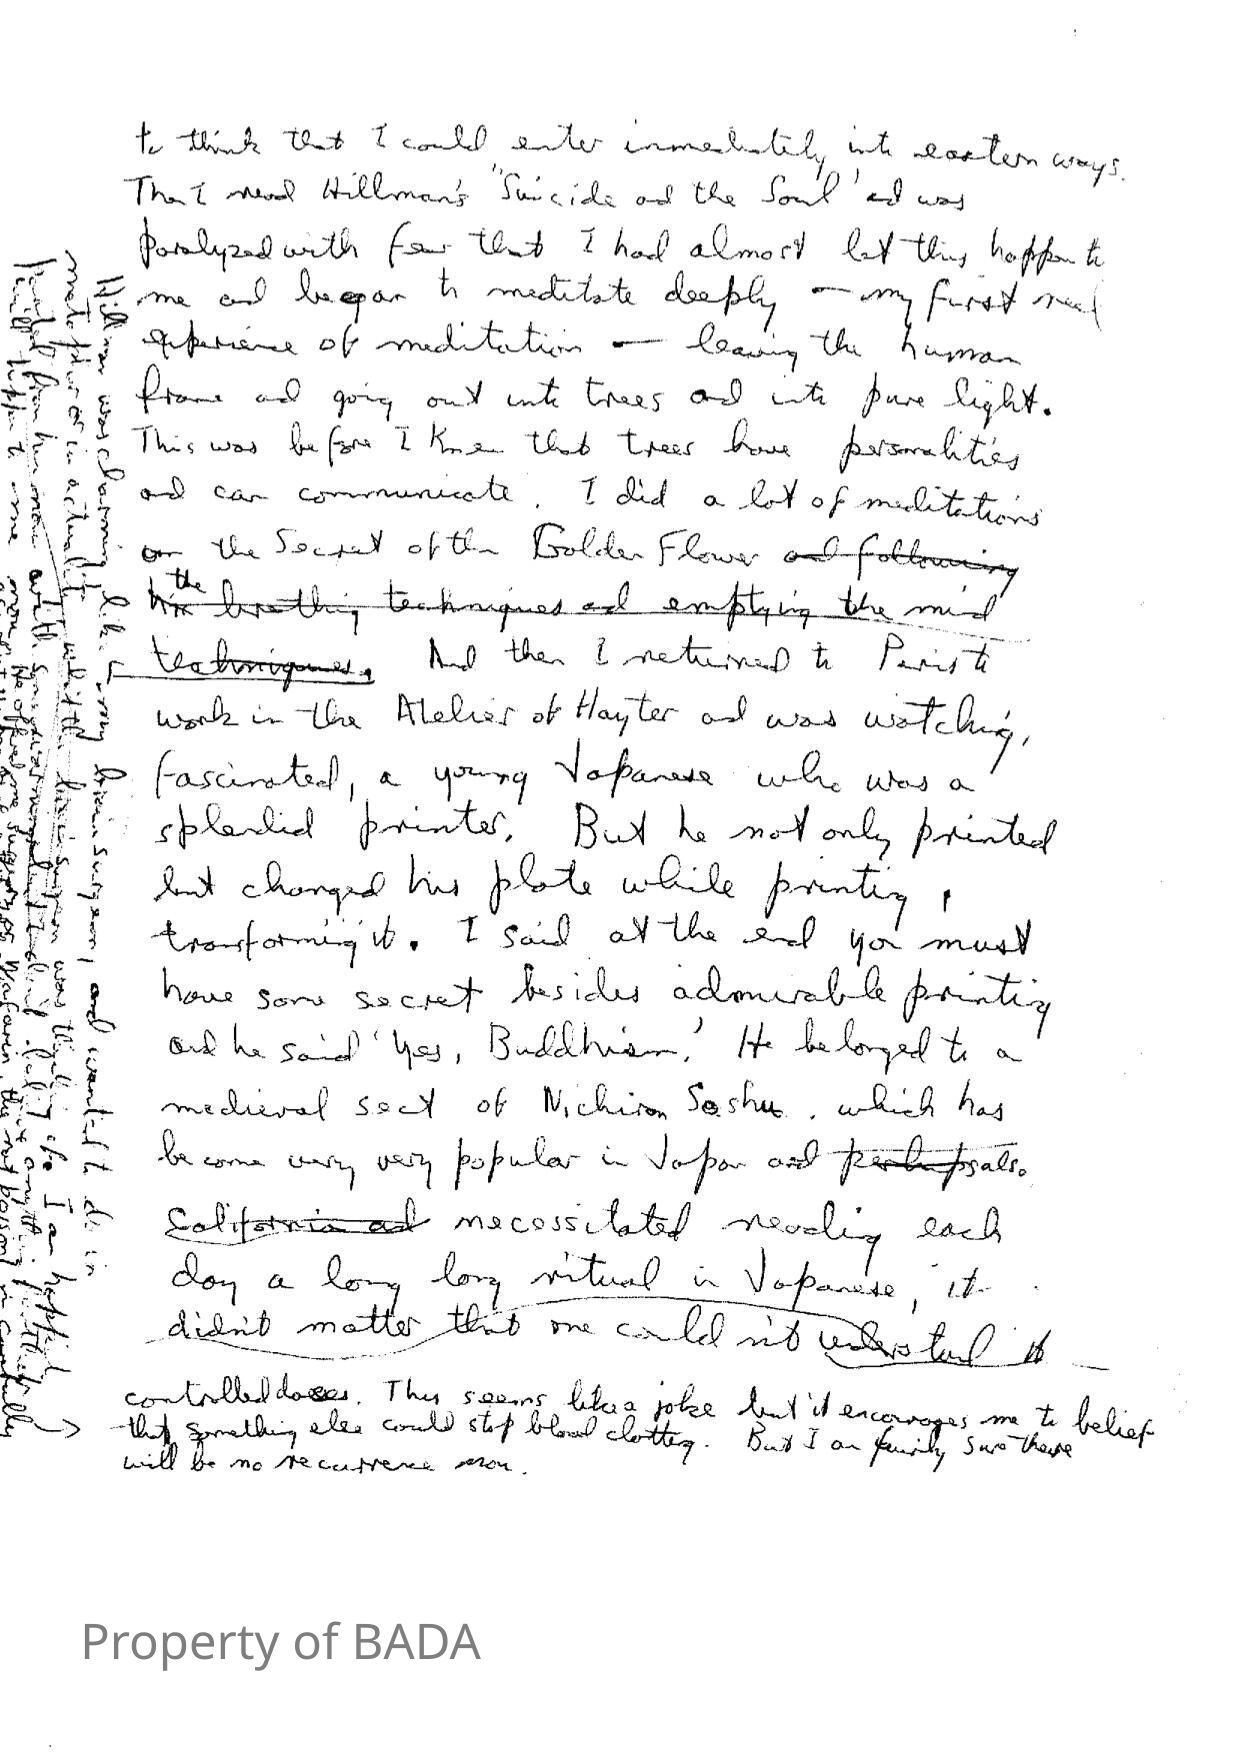 to think that I could enter immediately into eastern ways.
Then I read Hillman's "Suicide and the Soul' and was
paralyzed with fear that I had almost let this happen to
me and began to meditate deeply — my first real
experience of meditation — leaving the human
frame and going out into trees and into pure light.
This was before I knew that trees have personalities
and can communicate. I did a lot of meditations
on the Secret of the Golden Flower and following
the
his breathing techniques and emptying the mind
techniques. And then I returned to Paris to
work in the Atelier of Hayter and was watching,
fascinated, a young Japanese who was a
splendid printer. But he not only printed
but changed his plate while printing,
transforming it. I said at the end you must
have some secret besides admirable printing
and he said 'Yes, Buddhism.' He belonged to a
medieval sect of Nichiren Soshu. which has
become very very popular in Japan and perhaps also
California and necessitated reading each
day a long long ritual in Japanese, it
didn't matter that one could n't understand it
controlled doses. This seems like a joke but it encourages me to belief
that something else could stop blood clotting. But I am fairly sure there
will be no recurrence now.
Hillman was charming, like my brain surgeon, and wanted to do in
metaphor or in actuality what the brain surgeon was
Property of BADA